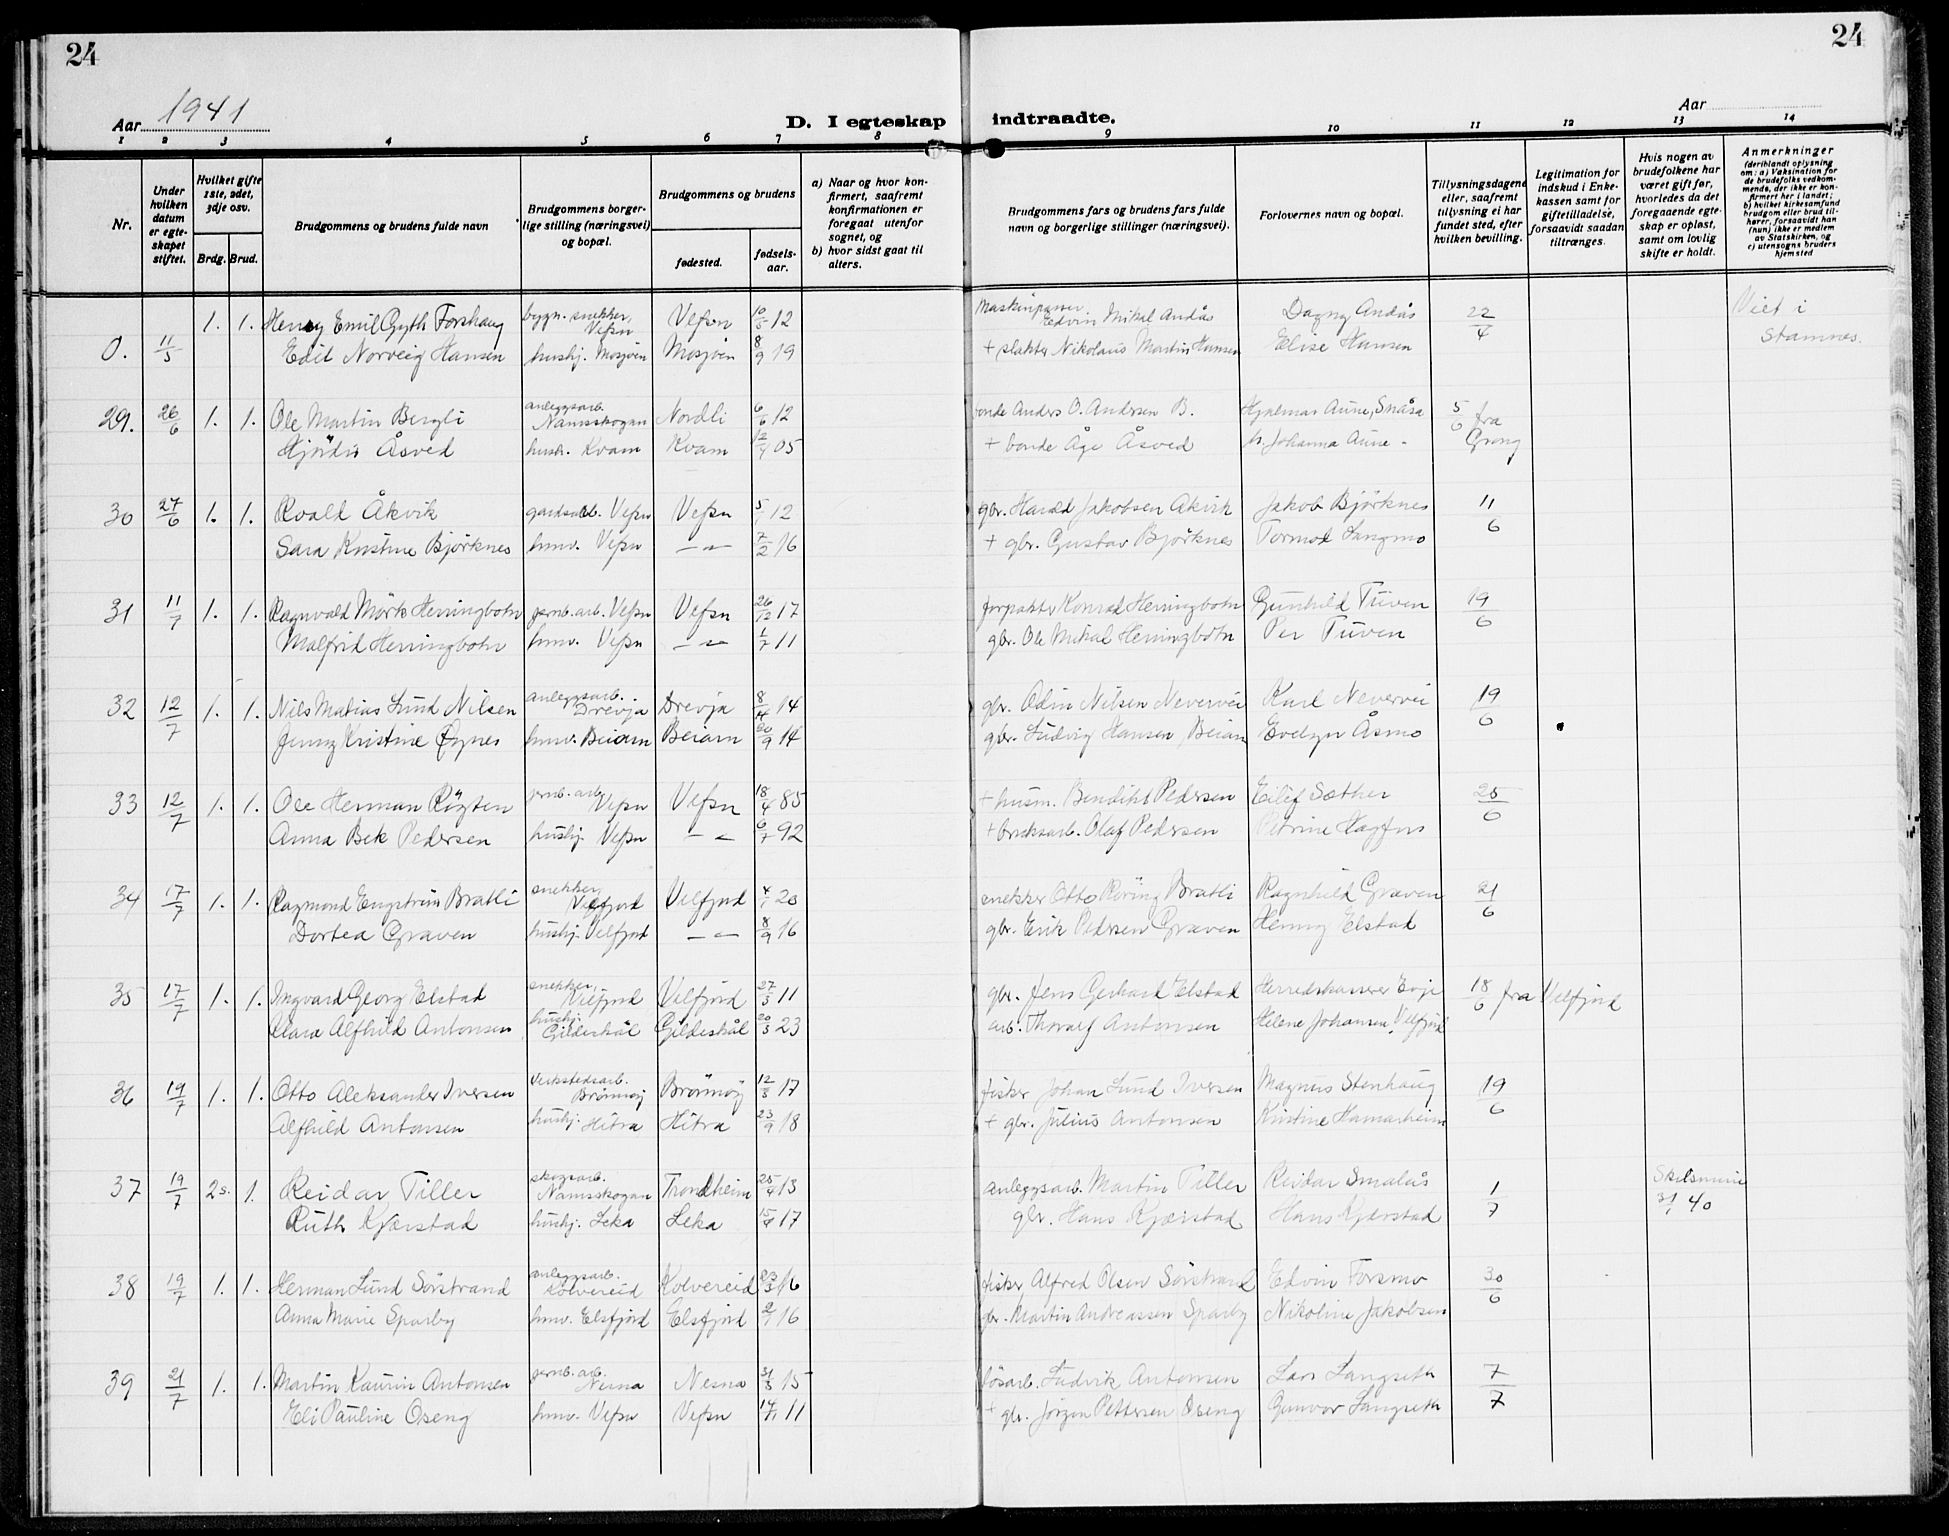 24
24
Aar 1941
D. I egteskap indtraadte.
Aar
1 2 3 4 5 6 7 8 9 10 11 12 13 14
Nr.
Under hvilken datum er egteskapet stiftet.
Hvilket gifte 1ste, 2det, 3dje osv.
Brdg. Brud.
Brudgommens og brudens fulde navn
Brudgommens borgerlige stilling (næringsvei) og bopæl.
Brudgommens og brudens
fødested.
fødselsaar.
a) Naar og hvor konfirmert, saafremt konfirmationen er foregaat utenfor sognet, og
b) hvor sidst gaat til alters.
Brudgommens fars og brudens fars fulde navn og borgerlige stillinger (næringsvei).
Forlovernes navn og bopæl.
Tillysningsdagene eller, saafremt tillysning ei har fundet sted, efter hvilken bevilling.
Legitimation for indskud i Enkekassen samt for giftetilladelse, forsaavidt saadan tiltrænges.
Hvis nogen av brudefolkene har været gift før, hvorledes da det foregaaende egteskap er opløst, samt om lovlig skifte er holdt.
Anmerkninger
(deriblandt oplysning om: a) Vaksination for de brudefolks vedkommende, der ikke er konfirmert her i landet; b) hvilket kirkesamfund brudgom eller brud tilhører, forsaavidt han (hun) ikke er medlem av Statskirken, og c) utensogns bruders hjemsted
0. 11/5 1. 1. Henry Emil Gyth Forshaug bygn. snekker, Vefsn Vefsn 10/5 12 Edvin Mikal Andås Dagny Andås 22/4 Viet i
Edit Norveig Hansen hushj. Mosjøen Mosjøen 8/9 19 + slakter Nikolaus Martin Hansen Elise Hansen Stamnes.
29. 26/6 1. 1. Ole Martin Bergli anleggsarb. Namsskogan Nordli 6/6 12 bonde Anders O. Andersen B. Hjalmar Aune, Snåsa 5/6 fra
Hjördis Åsved hush. Kvam Kvam 12/4 05 + bonde Åge Åsved Johanna Aune - Grong
30 27/6 1. 1. Roald Åkvik gardsarb. Vefsn Vefsn 5/1 12 gbr. Harald Jakobsen Åkvik Jakob Björknes 11/6
Sara Kristine Björknes hmv. Vefsn — " — 7/2 16 + gbr. Gustav Björknes Tormod Langmo
31 11/7 1. 1. Ragnvald Mörk Herringbotn jernb.arb. Vefsn Vefsn 26/12 17 forpakter Konrad Herringbotn Gunhild Tuven 19/6
Malfrid Herringbotn hmv. Vefsn — " — 1/7 11 gbr. Ole Mikal Herringbotn Per Tuven
32 12/7 1. 1. Nils Matias Lund Nilsen anleggsarb. Drevja Drevja 8/4 14 gbr. Odin Nilsen Nevervei Karl Nevervei 19/6
Jenny Kristine Øynes hmv. Beiarn Beiarn 30/9 14 gbr. Ludvig Hansen, Beiarn Evelyn Åsmo
33 12/7 1. 1. Ole Herman Röyten jernb.arb. Vefsn Vefsn 18/4 85 + husm. Bendikt Pedersen Eilif Sæther 25/6
Anna Bek Pedersen hushj. Vefsn — " — 6/7 92 + bruksarb. Olaf Pedersen Petrine Hagfors
34 17/7 1. 1. Ragmond Engstrøm Bratli snekker, Velfjord Velfjord 4/1 20 snekker Otto Röring Bratli Ragnhild Græven 21/6
Dortea Græven hushj. Velfjord — " — 8/9 16 gbr. Erik Pedersen Græven Henny Elstad
35 17/7 1. 1. Ingvard Georg Elstad snekker, Velfjord Velfjord 27/3 11 gbr. Jens Gerhard Elstad Herredskasserer Evje 18/6 fra Velfjord
Klara Alfhild Antonsen hushj. Gildeskål Gildeskål 20/3 23 arb. Thoralf Antonsen Helene Johansen, Velfjord
36 19/7 1. 1. Otto Aleksander Iversen Verkstedsarb. Brönnöy Brönnöy 12/3 17 fisker Johan Lund Iversen Magnus Stenhaug 19/6
Alfhild Antonsen hushj. Hitra Hitra 23/9 18 + gbr. Julius Antonsen Kristine Hamarheim
37 19/7 2s. 1. Reidar Tiller skogsarb. Namsskogan Trondheim 25/9 13 anleggsarb. Martin Tiller Reidar Smalås 1/7 Skilsmisse
Ruth Kjærstad hushj. Leka Leka 15/9 17 gbr. Hans Kjærstad Hans Kjærstad 31/1 40
38 19/7 1. 1. Herman Lund Sörstrand anleggsarb. Kolvereid Kolvereid 23/3 16 fisker Alfred Olsen Sörstrand Edvin Forsmo 30/6
Anna Marie Sparby hmv. Elsfjord Elsfjord 2/7 16 gbr. Martin Andreassen Sparby Nikoline Jakobsen
39 21/7 1. 1. Martin Kaurin Antonsen jernb.arb. Nesna Nesna 31/3 15 lösarb. Ludvik Antonsen Lars Langseth 7/7
Eli Pauline Oseng hmv. Vefsn Vefsn 14/7 11 + gbr. Jörgen Pettersen Oseng Gunvor Langseth